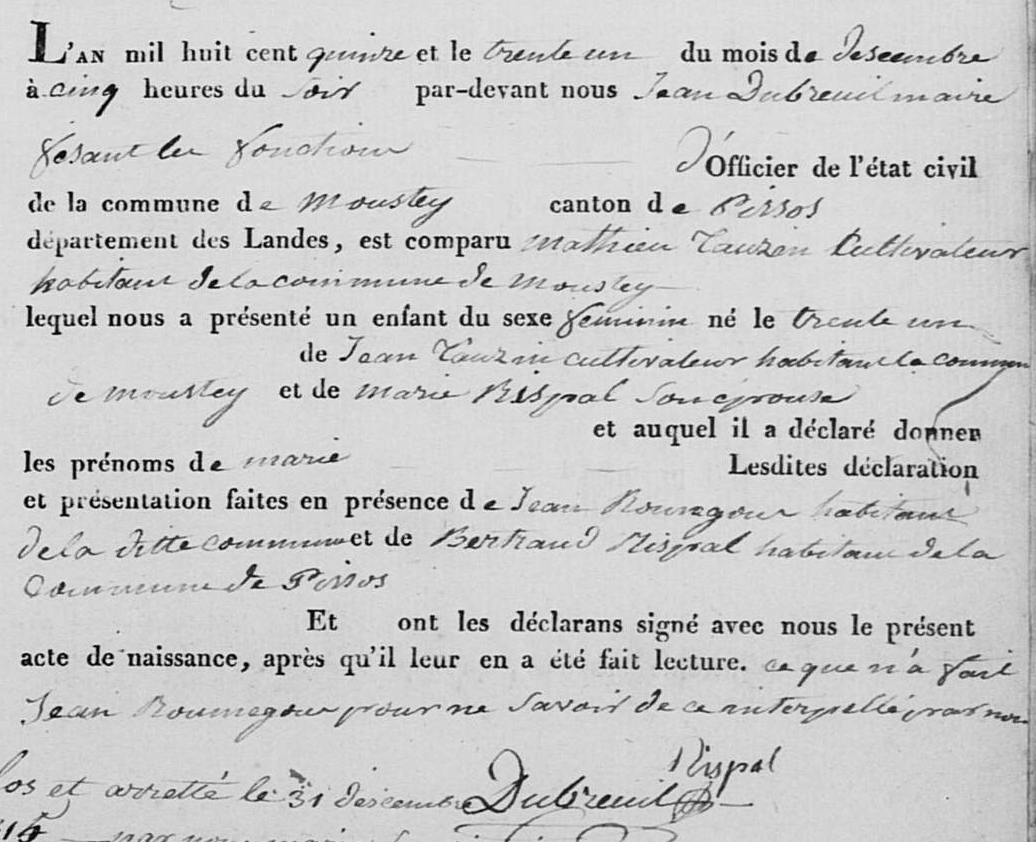 L'AN mil huit cent quinze et le trente un du mois de descembre
à cinq heures du soir par-devant nous Jean Dubreuil maire
fesant les fonctions D'Officier de l'état civil
de la commune de Moustey canton de Pissos
département des Landes, est comparu Mathieu Tauzin Cultivateur
habitant de la commune de Moustey
lequel nous a présenté un enfant du sexe feminin né le trente un
de Jean Tauzin cultivateur habitant la commune
de moustey et de marie Rispal son épouse
et auquel il a déclaré donner
les prénoms de marie Lesdites déclaration
et présentation faites en présence de Jean Roumegour habitant
de la ditte commune et de Bertrand Rispal habitant de la
Commune de Pissos
Et ont les déclarans signé avec nous le présent
acte de naissance, après qu'il leur en a été fait lecture. ce que n'a fait
Jean Roumegour pour ne savoir de ce interpellé par nous
Rispal
los et arretté le 31 descembre Dubreuil
par nous maire